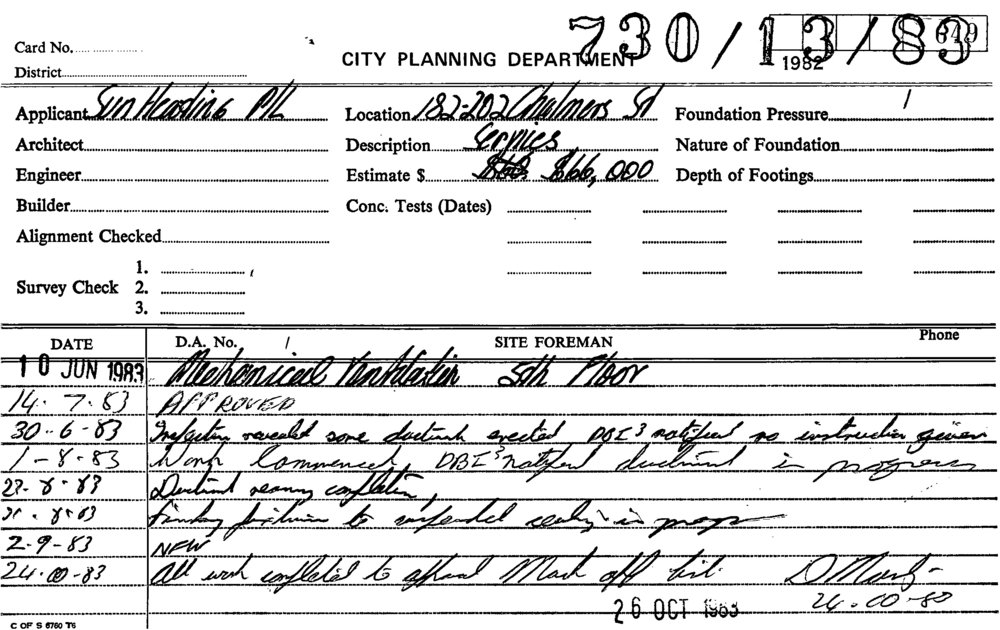 730/13/83
649
1982
Card No.
CITY PLANNING DEPARTMENT
District
Applicant Sun Heading P/L Location 182-202 Chalmers St Foundation Pressure
Architect Description Services Nature of Foundation
Engineer Estimate $ $66,000 Depth of Footings
Builder Conc. Tests (Dates)
Alignment Checked
1.
Survey Check 2.
3.
DATE D.A. No. / SITE FOREMAN Phone
10 JUN 1983 Mechanical Ventilation 5th Floor
14.7.83 APPROVED
30-6-83 Inspection revealed some ductwork erected notified no instruction given
1-8-83 Work Commenced, notified ductwork in progress
Ductwork nearing completion,
to suspended ceiling in progs
2-9-83 NFW
All work completed to approval Mark off list.
26 OCT 1983
C OF S 6760 T6